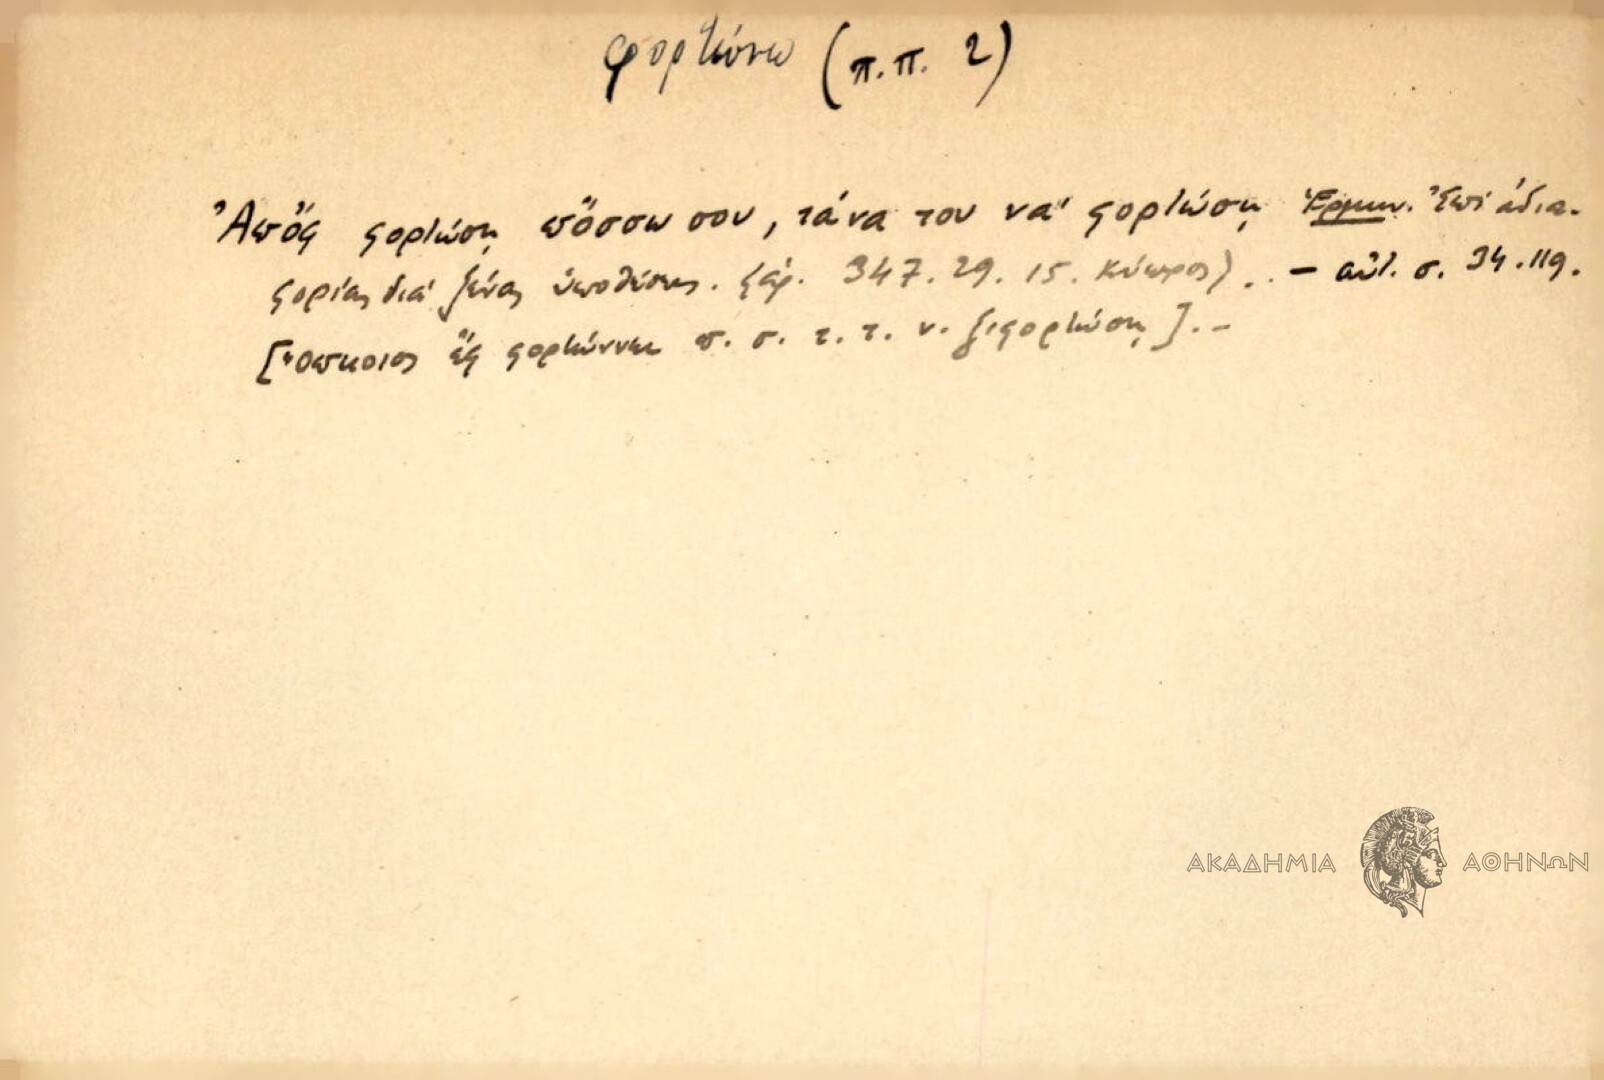 φορτώνω (π.π. 2)
Ἀπὄς φορτώσῃ πὄσσω σου, τάνα του νὰ φορτώσῃ Ἑρμην. Ἐπὶ ἀδια-
φορίας διὰ ξένας ὑποθέσεις. (ἀρ. 347. 29. 15. Κύπρος) .. — αὐτ. σ. 34. 119.
[Ὅποιος ἒς φορτώννει π. σ. τ. τ. ν. ξιφορτώσῃ]. —
ΑΚΑΔΗΜΙΑ ΑΘΗΝΩΝ